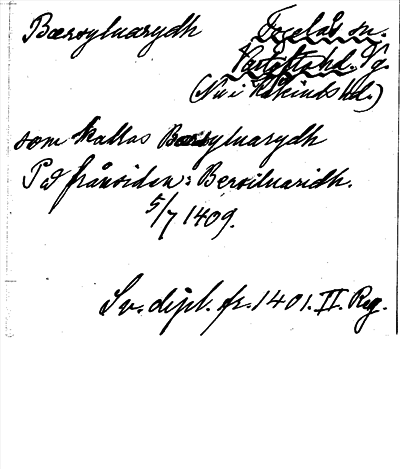 Bærsyluarydh Torelås sn.
Vartofta hd. Sg.
(Nu i Kåkinds hd.)
som kallas Bærsyluarydh
På frånsidan: Bersiluaridh.
5/7 1409.
Sv. dipl. fr. 1401. II. Reg.